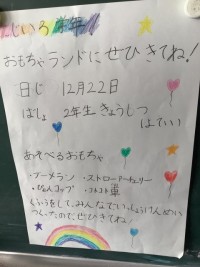 にじいろ学年
おもちゃランドにぜひきてね!
日じ 12月22日
ばしょ 2年生きょうしつ
はてい
あそべるおもちゃ
・ブーメラン ・ストローアーチェリー
・ぴょんコップ ・コトコト車
くふうをして、みんなでいっしょうけんめい
つくったので、ぜひきてね!